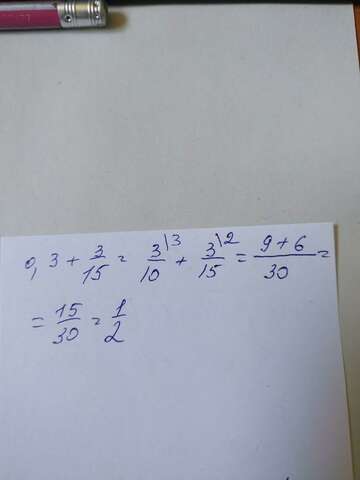 0,3 + 3/15 = 3\3/10 + 3\2/15 = 9+6/30 =
= 15/30 = 1/2